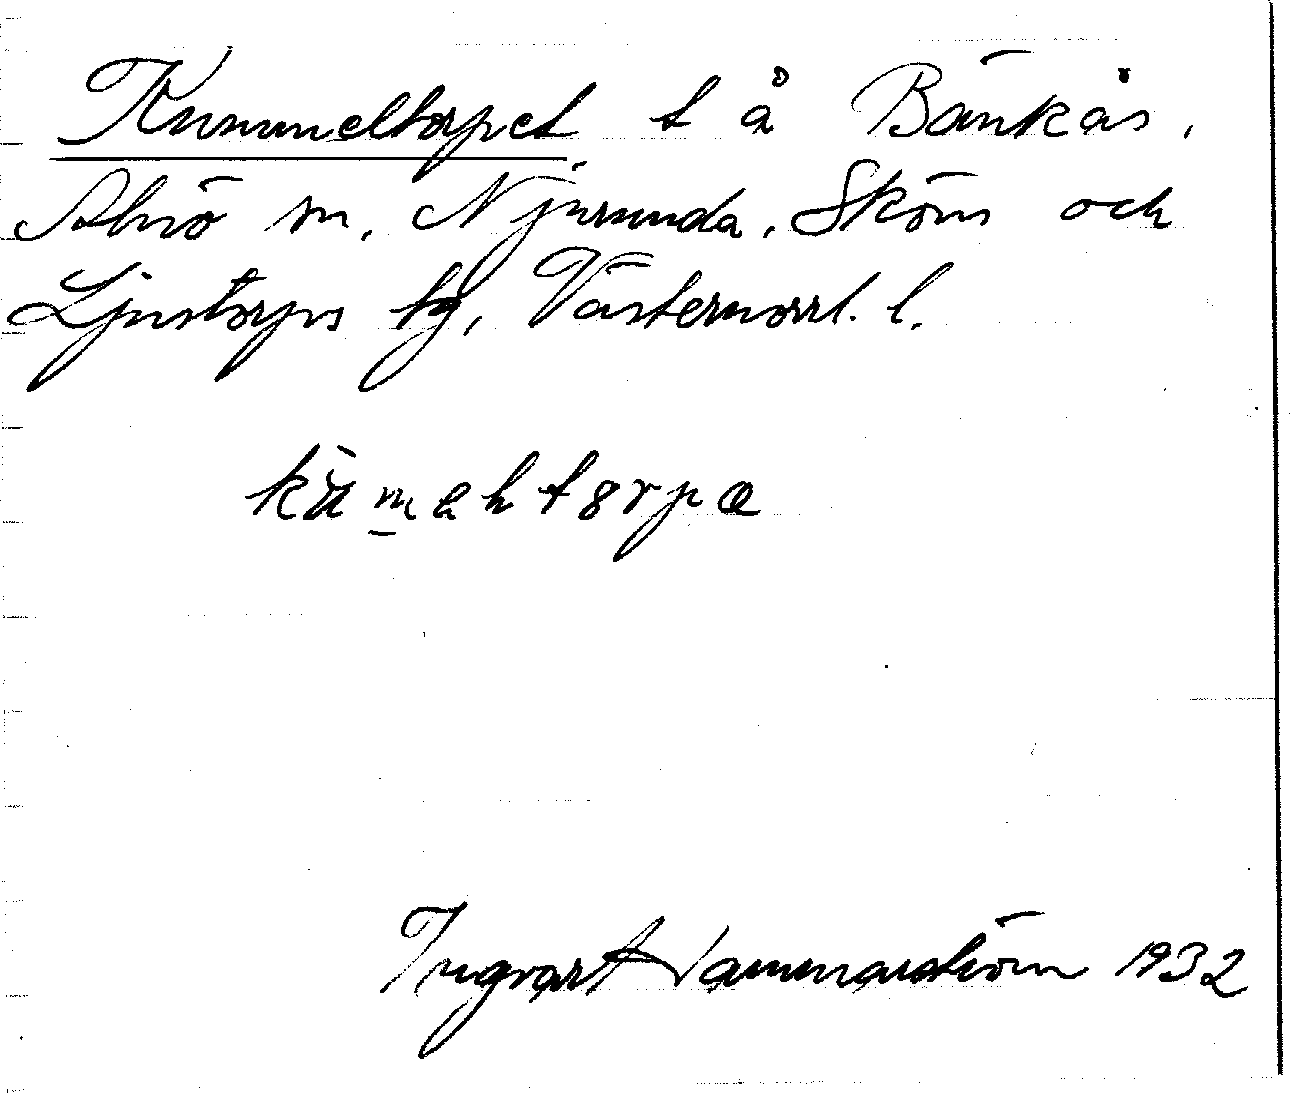 Kummeltorpet t å Bänkås,
Alnö sn, Njurunda, Sköns och
Ljustorps tg, Västernorrl. l.
Ingvar Hammarström 1932